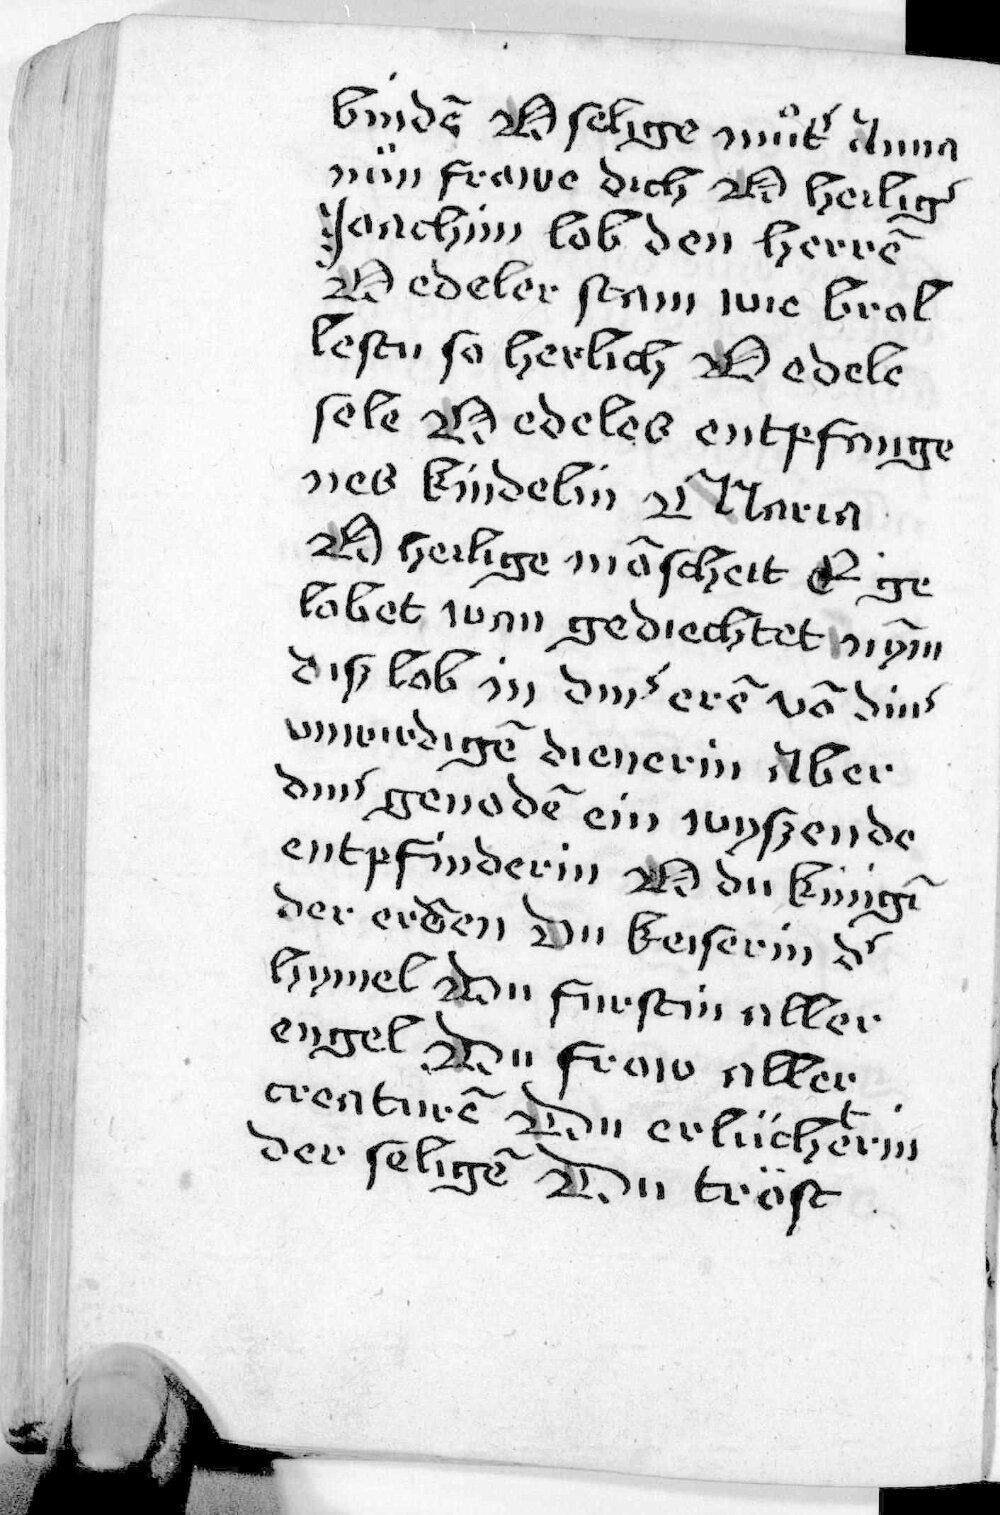 bindē O selige muͦtˀ Anna
nün frawe dich O heiligˀ
Joachim lob den herrē
O edeler stam wie brol
lestu so herlich O edele
sele O edeles entpfange
nes kindelin Maria
O heilige māscheit ge
lobet wan gediechtet nỹm
disz lob in dinˀ erē vō dinˀ
unwirdigē dienerin Aber
dinˀ genodē ein wyszende
entpfinderin O du künigī
der erden Du keiserin dˀ
hymel Du furstin aller
engel Du fraw aller
creaturē Du erlüchterin
der seligē Du tröst